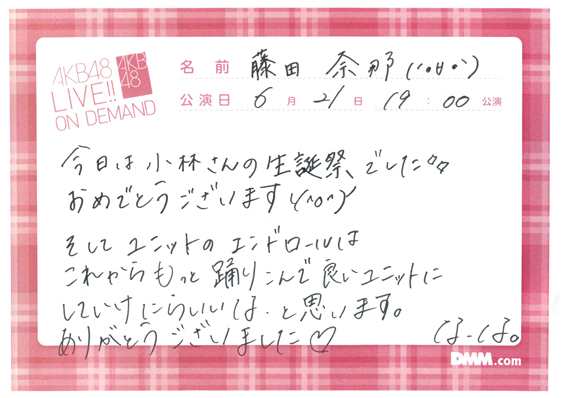 AKB48
LIVE!!
ON DEMAND
AKB
48
名前 藤田 奈那(・θ・)
公演日 6月21日 19:00 公演
今日は小林さんの生誕祭でした☆☆
おめでとうございます\(^o^)/
そして ユニットの エンドロールは
これからもっと 踊りこんで 良いユニットに
していけたらいいな. と思います。
ありがとうございました♡
なーな。
DMM.com